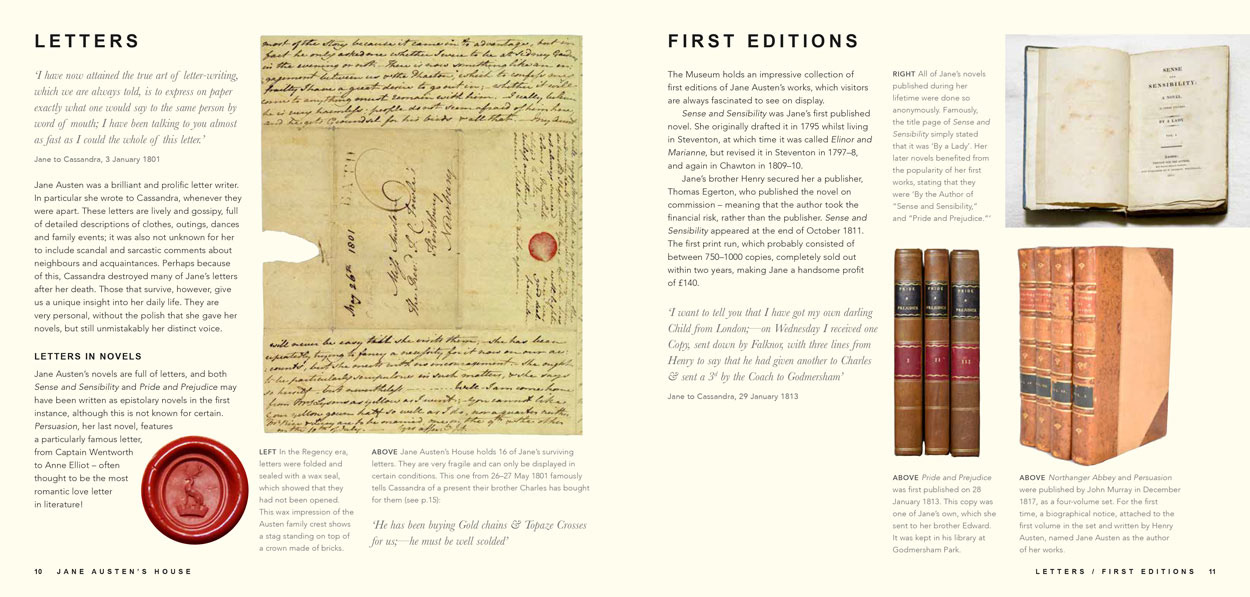 LETTERS
‘I have now attained the true art of letter-writing,
which we are always told, is to express on paper
exactly what one would say to the same person by
word of mouth; I have been talking to you almost
as fast as I could the whole of this letter.’
Jane to Cassandra, 3 January 1801
Jane Austen was a brilliant and prolific letter writer.
In particular she wrote to Cassandra, whenever they
were apart. These letters are lively and gossipy, full
of detailed descriptions of clothes, outings, dances
and family events; it was also not unknown for her
to include scandal and sarcastic comments about
neighbours and acquaintances. Perhaps because
of this, Cassandra destroyed many of Jane’s letters
after her death. Those that survive, however, give
us a unique insight into her daily life. They are
very personal, without the polish that she gave her
novels, but still unmistakably her distinct voice.
LETTERS IN NOVELS
Jane Austen’s novels are full of letters, and both
Sense and Sensibility and Pride and Prejudice may
have been written as epistolary novels in the first
instance, although this is not known for certain.
Persuasion, her last novel, features
a particularly famous letter,
from Captain Wentworth
to Anne Elliot – often
thought to be the most
romantic love letter
in literature!
most of the Story because it came in to advantage, but in
fact he only asked me whether I were to be at Sidney Gardens
in the evening or not. There is now something like an en-
gagement between us & the Phaeton, which to confess my
frailty I have a great desire to go out in; whether it will
come to anything must remain with him. I really believe
he is very harmless; people do not seem afraid of him here
and he gets Groundsel for his birds & all that.
May 26th 1801
Miss Austen
Newbury
will never be easy till she
LEFT In the Regency era,
letters were folded and
sealed with a wax seal,
which showed that they
had not been opened.
This wax impression of the
Austen family crest shows
a stag standing on top of
a crown made of bricks.
ABOVE Jane Austen’s House holds 16 of Jane’s surviving
letters. They are very fragile and can only be displayed in
certain conditions. This one from 26–27 May 1801 famously
tells Cassandra of a present their brother Charles has bought
for them (see p.15):
‘He has been buying Gold chains & Topaze Crosses
for us;—he must be well scolded’
10 JANE AUSTEN’S HOUSE
FIRST EDITIONS
The Museum holds an impressive collection of
first editions of Jane Austen’s works, which visitors
are always fascinated to see on display.
Sense and Sensibility was Jane’s first published
novel. She originally drafted it in 1795 whilst living
in Steventon, at which time it was called Elinor and
Marianne, but revised it in Steventon in 1797–8,
and again in Chawton in 1809–10.
Jane’s brother Henry secured her a publisher,
Thomas Egerton, who published the novel on
commission – meaning that the author took the
financial risk, rather than the publisher. Sense and
Sensibility appeared at the end of October 1811.
The first print run, which probably consisted of
between 750–1000 copies, completely sold out
within two years, making Jane a handsome profit
of £140.
‘I want to tell you that I have got my own darling
Child from London;—on Wednesday I received one
Copy, sent down by Falknor, with three lines from
Henry to say that he had given another to Charles
& sent a 3d by the Coach to Godmersham’
Jane to Cassandra, 29 January 1813
RIGHT All of Jane’s novels
published during her
lifetime were done so
anonymously. Famously,
the title page of Sense and
Sensibility simply stated
that it was ‘By a Lady’. Her
later novels benefited from
the popularity of her first
works, stating that they
were ‘By the Author of
“Sense and Sensibility,”
and “Pride and Prejudice.”’
SENSE
AND
SENSIBILITY:
A NOVEL.
IN THREE VOLUMES.
BY A LADY.
VOL. I.
PRIDE
&
PREJUDICE
I
PRIDE
&
PREJUDICE
II
PRIDE
&
PREJUDICE
III
ABOVE Pride and Prejudice
was first published on 28
January 1813. This copy was
one of Jane’s own, which she
sent to her brother Edward.
It was kept in his library at
Godmersham Park.
ABOVE Northanger Abbey and Persuasion
were published by John Murray in December
1817, as a four-volume set. For the first
time, a biographical notice, attached to the
first volume in the set and written by Henry
Austen, named Jane Austen as the author
of her works.
LETTERS / FIRST EDITIONS 11